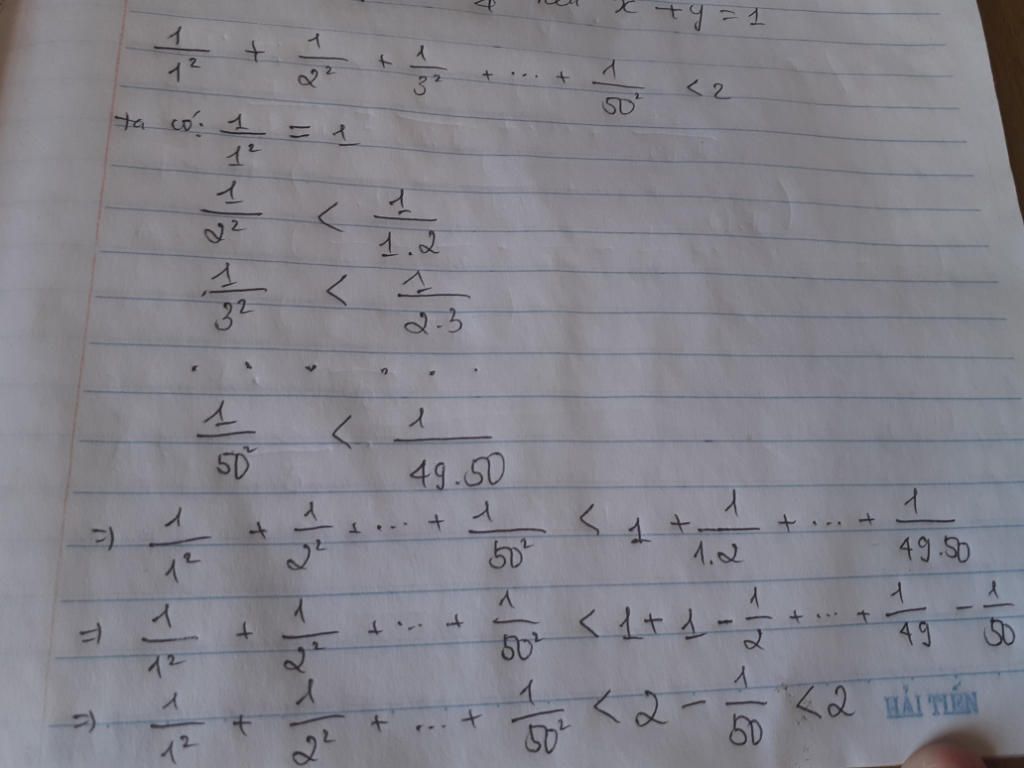 x + y = 1
1/1² + 1/2² + 1/3² + ... + 1/50² < 2
ta có: 1/1² = 1
1/2² < 1/1.2
1/3² < 1/2.3
. . . . . .
1/50² < 1/49.50
=> 1/1² + 1/2² + ... + 1/50² < 1 + 1/1.2 + ... + 1/49.50
=> 1/1² + 1/2² + ... + 1/50² < 1 + 1 - 1/2 + ... + 1/49 - 1/50
=> 1/1² + 1/2² + ... + 1/50² < 2 - 1/50 < 2
HẢI TIẾN